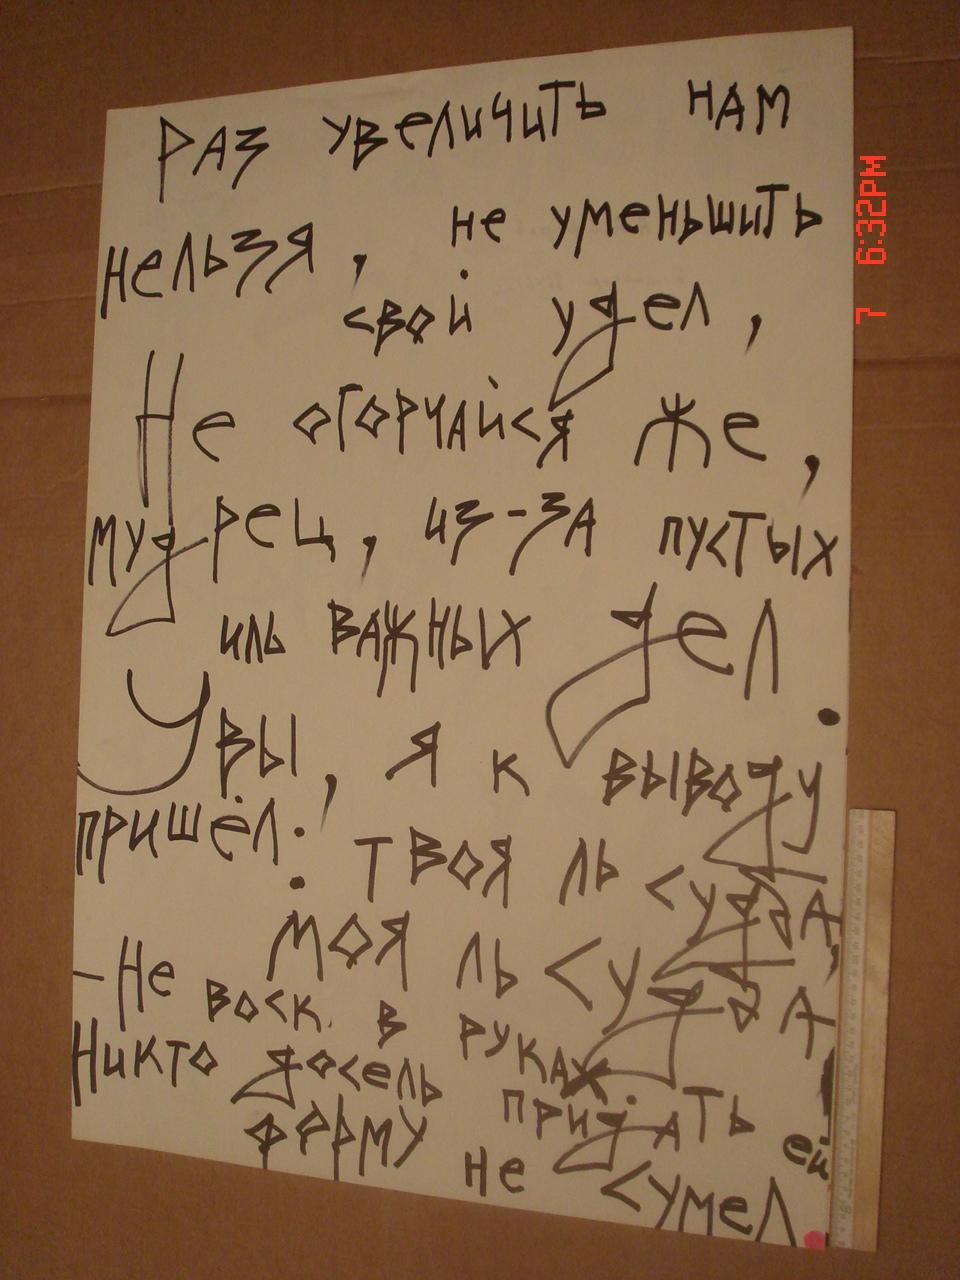 Раз увеличить нам
нельзя, не уменьшить
свой удел,
Не огорчайся же,
мудрец, из-за пустых
иль важных дел.
Увы, я к выводу
пришёл:
твоя ль судьба,
моя ль судьба
—Не воск в руках.
Никто досель придать ей
форму не сумел.
7 6:32PM